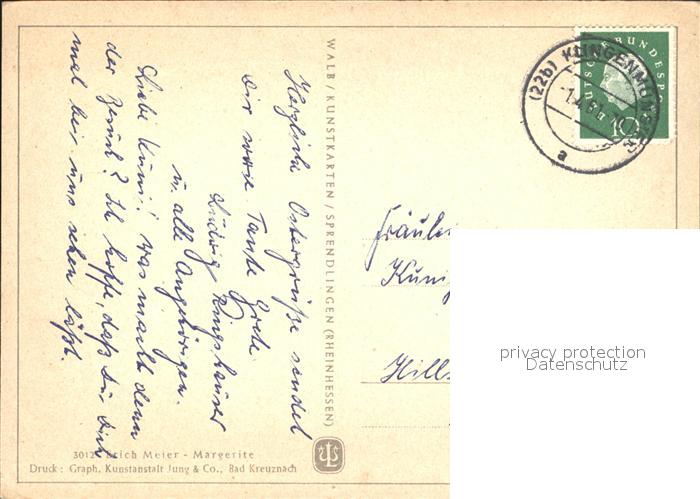 Herzliche Ostergrüße sendet
Dir sowie Tante Grete
Ludwig Ringshauser
u. alle Angehörigen.
Liebe Kuni! Was macht denn
der Beruf? Ich hoffe, daß Du Dich
mal bei uns sehen läßt.
WALB / KUNSTKARTEN / SPRENDLINGEN (RHEINHESSEN)
(22b) KLINGENMÜNSTER
a
DEUTSCHE BUNDESPOST
10
Fräulein
Kunig
Hills
privacy protection
Datenschutz
3012 Erich Meier - Margerite
Druck: Graph. Kunstanstalt Jung & Co., Bad Kreuznach